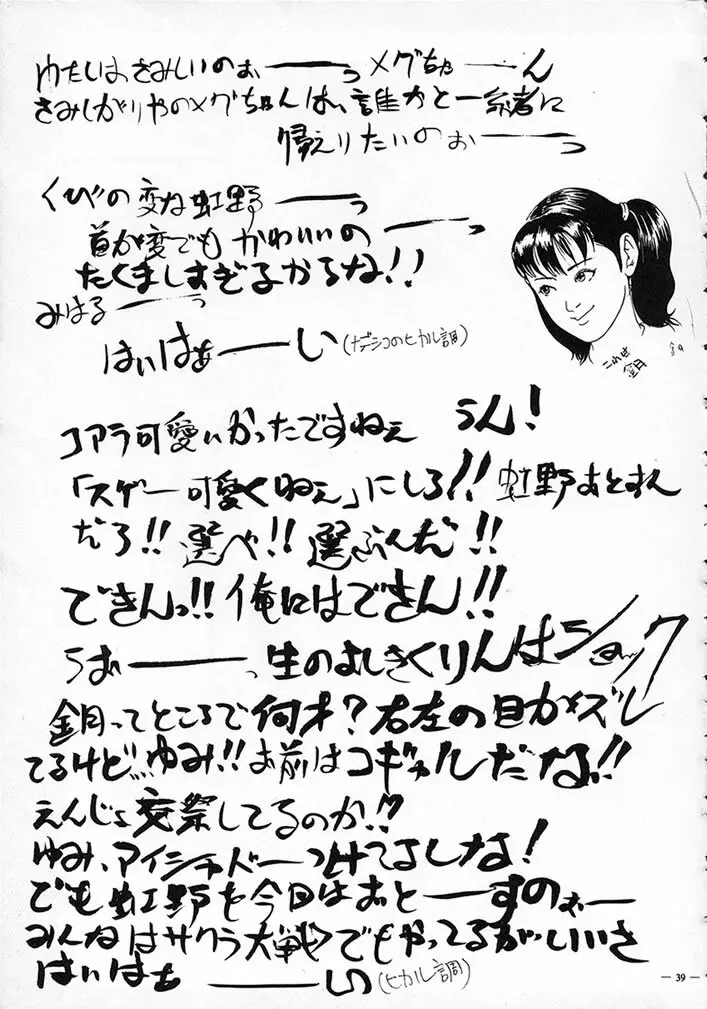 わたしはさみしいのぉーーーっメグちゃーーん
さみしがりやのメグちゃんは、誰かと一緒に
帰えりたいのぉーーーっ
くびの変な虹野ーーーっ
首が変でもかわいいのーーーっ
たくましすぎるからな!!
みはるーーーっ
はいはぁーーい(ナデシコのヒカル調)
これは
鏡
コアラ可愛いかったですねぇ うん!
「スゲー可愛くねぇ」にしろ!! 虹野おとすん
だろ!!選べ!!選ぶんだ!!
できんっ!!俺にはできん!!
うおーーーっ生のよしきくりんはショック
鏡ってところで何才?右左の目がズレ
てるけど…ゆみ!!お前はコギャルだな!!
えんじょ交祭してるのか!?
ゆみ、アイシャドーつけてよしな!
でも虹野を今日はおとーーすのぉー
みんなはサクラ大戦でもやってるがいいさ
はいはぁーーーい(ヒカル調)
— 39 —